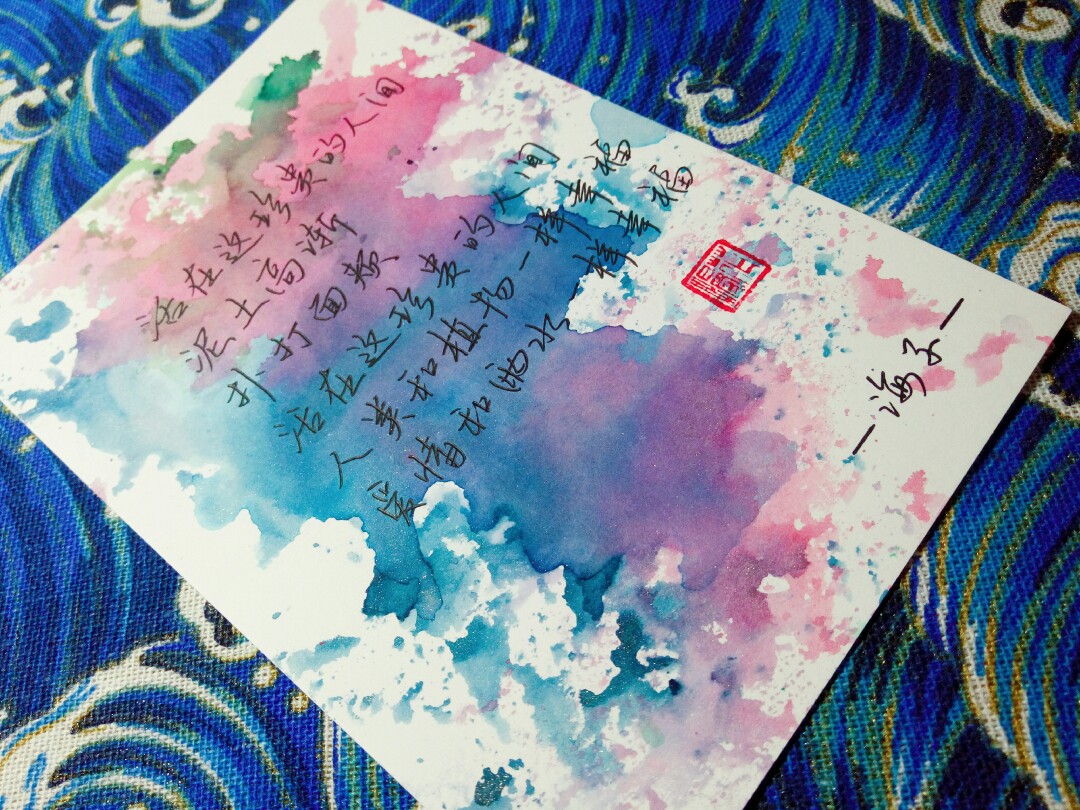 活在这珍贵的人间
泥土高溅
扑打面颊
活在这珍贵的人间
人类和植物一样幸福
爱情和雨水一样幸福
—海子—